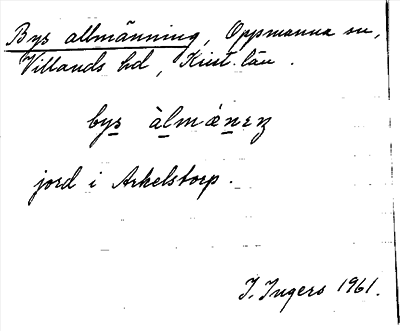 Bys allmänning, Oppmanna sn,
Villands hd, Krist. län.
bys àlmánɛŋ
jord i Arkelstorp.
I. Ingers 1961.